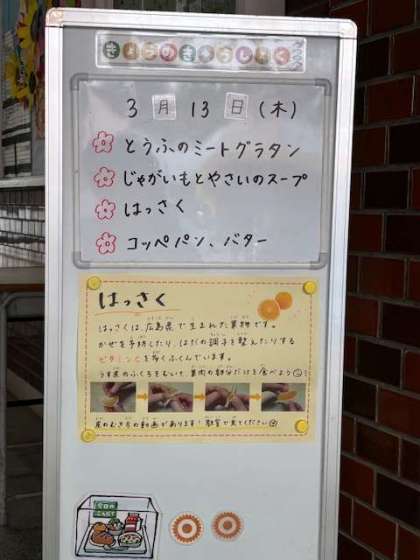 きょうのきゅうしょく
3月13日(木)
とうふのミートグラタン
じゃがいもとやさいのスープ
はっさく
コッペパン、バター
はっさく
はっさくは、広島県で生まれた果物です。
かぜを予防したり、はだの調子を整えたりする
ビタミンCを多くふくんでいます。
うす皮のふくろをむいて、果肉の部分だけを食べよう
皮のむき方の動画があります!教室で見てください
今日の
こんだて